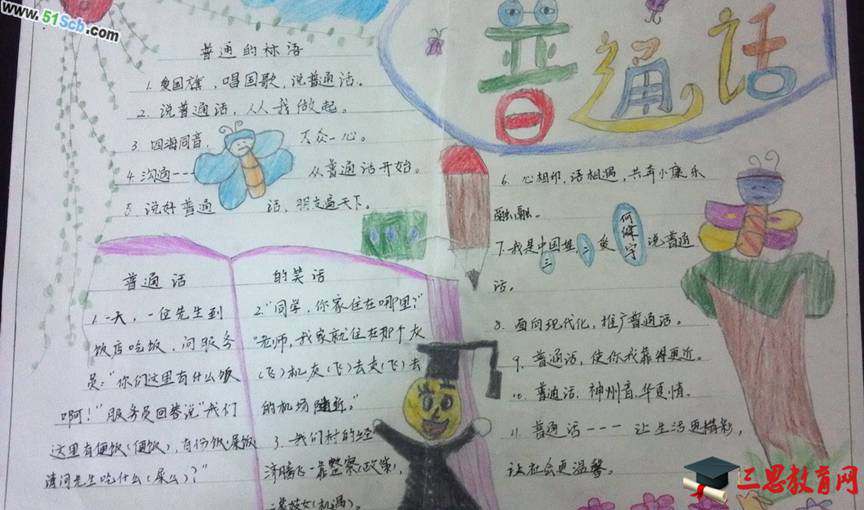 www.51Scb.com
普通话
普通的标语
1. 爱国旗，唱国歌，说普通话。
2. 说普通话，从我做起。
3 四海同音，万众一心。
4 沟通--- 从普通话开始。
5. 说好普通话，朋友遍天下。
6. 心相印，语相通，共奔小康乐
融融。
说普通
话。
8. 面向现代化，推广普通话。
9. 普通话，使你我靠得更近。
10. 普通话，神州音，华夏情。
11 普通话--- 让生活更精彩，
让社会更温馨。
普通话的笑话
1. 一天，一位先生到
饭店吃饭，问服务
员："你们这里有什么饭
啊！"服务员回答说"我们
这里有
请问先生吃什么(屎么)？"
2."同学，你家住在哪里？"
"老师，我家就住在那个灰
(飞)机灰(飞)去灰(飞)去
的机场附近。"
3. 我们村的经
济腾飞一靠警察(政策)，
二靠妓女(机遇)。
三思教育网